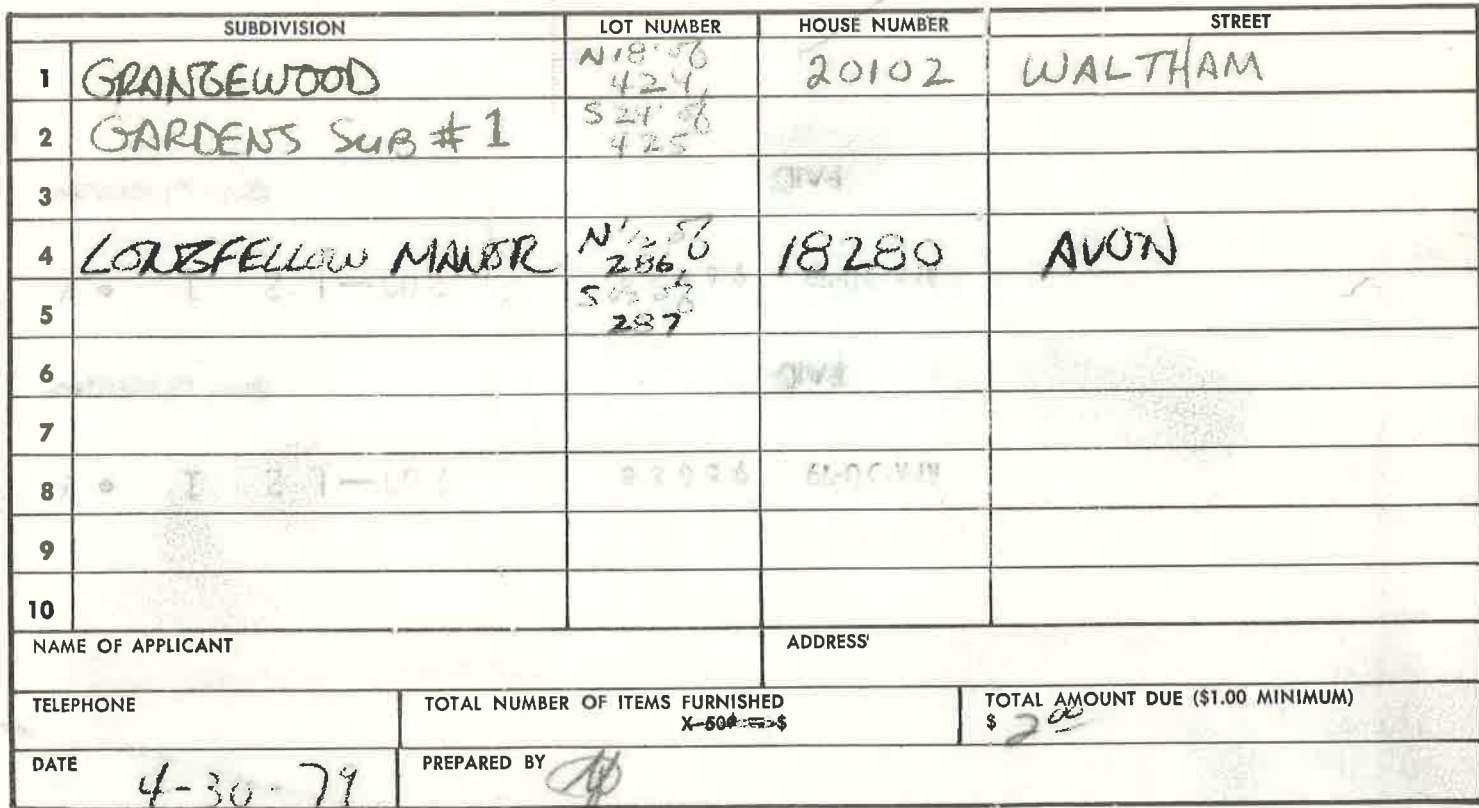 SUBDIVISION LOT NUMBER HOUSE NUMBER STREET
1 GRANGEWOOD N 18' of 424, 20102 WALTHAM
2 GARDENS SUB # 1 S 24' of 425
3
4 LONGFELLOW MANOR N 1/2 of 286, 18280 AVON
5 S of 287
6
7
8
9
10
NAME OF APPLICANT ADDRESS
TELEPHONE TOTAL NUMBER OF ITEMS FURNISHED TOTAL AMOUNT DUE ($1.00 MINIMUM)
X 50¢ = $ $ 2 00
DATE 4-30-79 PREPARED BY